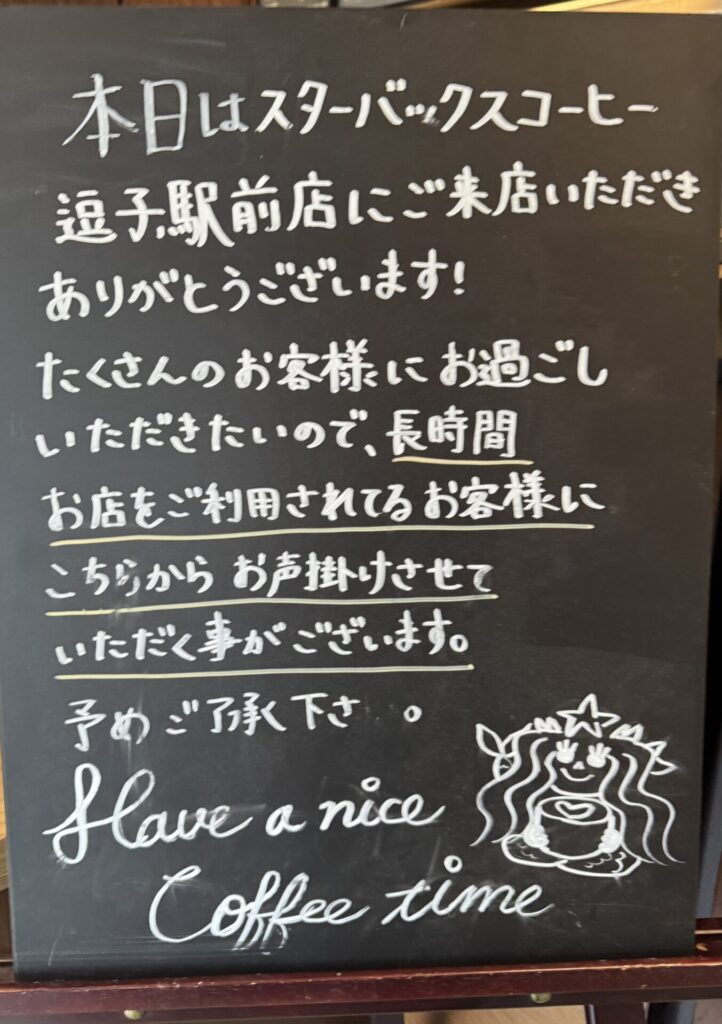 本日はスターバックスコーヒー
逗子駅前店にご来店いただき
ありがとうございます!
たくさんのお客様にお過ごし
いただきたいので、長時間
お店をご利用されてるお客様に
こちらから お声掛けさせて
いただく事がございます。
予めご了承下さ 。
Have a nice
Coffee time